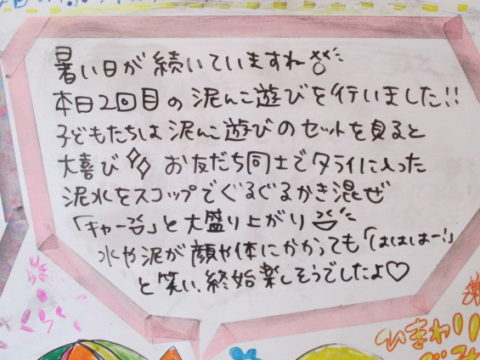 暑い日が続いていますね
本日2回目の泥んこ遊びを行いました!!
子どもたちは泥んこ遊びのセットを見ると
大喜び お友だち同士でタライに入った
泥水をスコップでぐるぐるかき混ぜ
「キャー」と大盛り上がり
水や泥が顔や体にかかっても「はははー!」
と笑い、終始楽しそうでしたよ♡
さくら
ひまわり